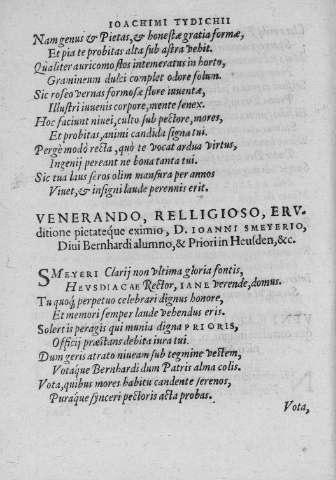 IOACHIMI TYDICHII
Nam genus & Pietas, & honestæ gratia formæ,
Et pia te probitas alta sub astra vehit.
Qualiter auricomo flos intemeratus in horto,
Gramineum dulci complet odore solum.
Sic roseo vernas formosæ flore iuuentæ,
Illustri iuuenis corpore, mente senex.
Hoc faciunt niuei, culto sub pectore, mores,
Et probitas, animi candida signa tui.
Pergè modò rectà, quò te vocat ardua virtus,
Ingenij pereant ne bona tanta tui.
Sic tua laus seros olim mansura per annos
Viuet, & insigni laude perennis erit.
VENERANDO, RELLIGIOSO, ERV-
ditione pietateque eximio, D. IOANNI SMEYERIO,
Diui Bernhardi alumno, & Priori in Heusden, &c.
SMEYERI Clarij non vltima gloria fontis,
HEVSDIACAE Rector, IANE verende, domus.
Tu quoq́; perpetuo celebrari dignus honore,
Et memori semper laude vehendus eris.
Solertis peragis qui munia digna PRIORIS,
Officij præstans debita iura tui.
Dum geris atrato niueam sub tegmine vestem,
Votaque Bernhardi dum Patris alma colis.
Vota, quibus mores habitu candente serenos,
Puraque synceri pectoris acta probas.
Vota,